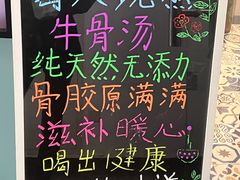 牛骨汤
纯天然无添力
骨胶原满满
滋补暖心
喝出健康